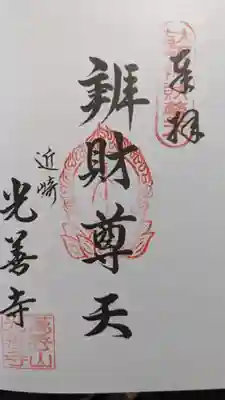 奉拝
辨財尊天
近崎
光善寺